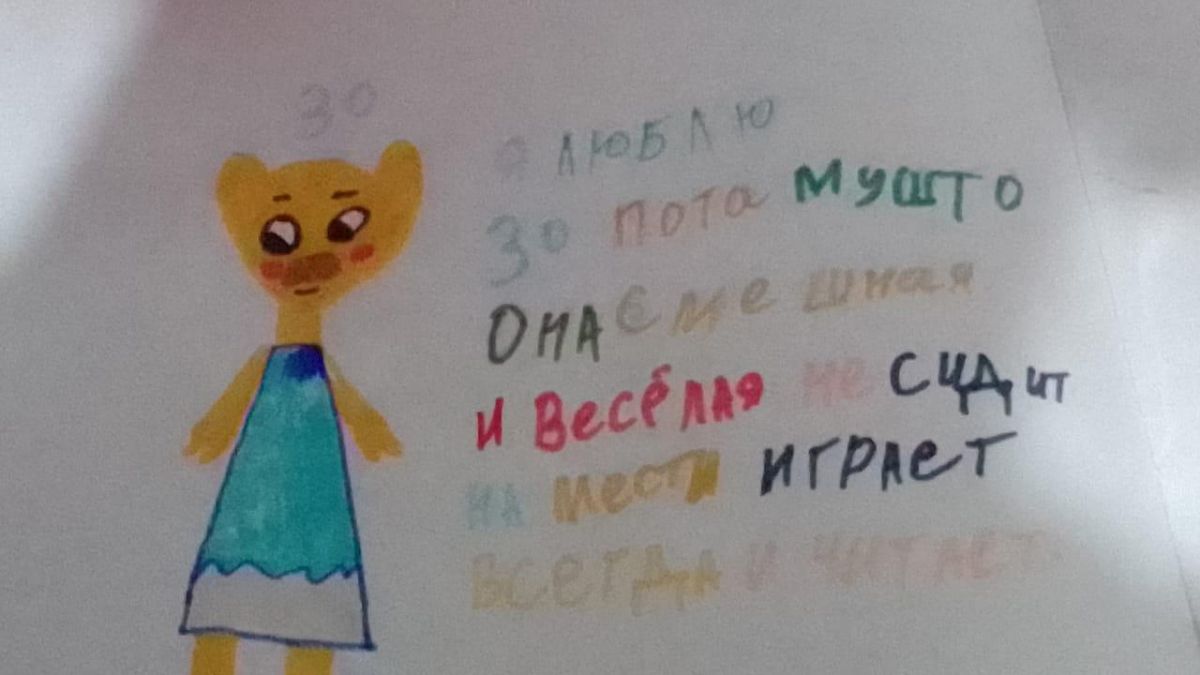 Зо
Я люблю
Зо пота мушто
она смешная
и весёлая не сидит
на мести играет
всегда и читает